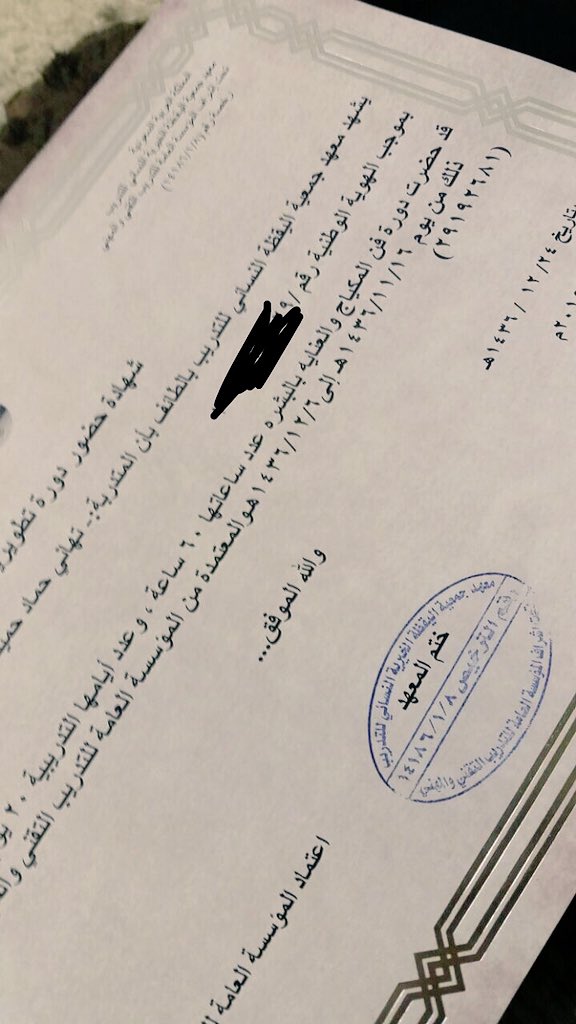 المملكة العربية السعودية
شهادة حضور دورة تطويرية
يشهد معهد جمعية اليقظة النسائي للتدريب بالطائف بأن المتدربة:. تهاني حماد
بموجب الهوية الوطنية رقم/
قد حضرت دورة فن المكياج والعناية بالبشره عدد ساعاتها ٦٠ ساعة ، و عدد أيامها التدريبية ٢٠
ذلك من يوم ١٤٣٦/١١/١٦هـ إلى ١٤٣٦/١٢/٦هـ والمعتمدة من المؤسسة العامة للتدريب التقني
(٢٩١٩٢٦٨١)
والله الموفق...
١٤٣٦/ ١٢/٢٤هـ
ختم المعهد
معهد جمعية اليقظة الخيرية النسائي للتدريب
رقم الترخيص ١٤١٨٦/١/٨
تحت اشراف المؤسسة العامة للتدريب التقني والمهني
اعتماد المؤسسة العامة